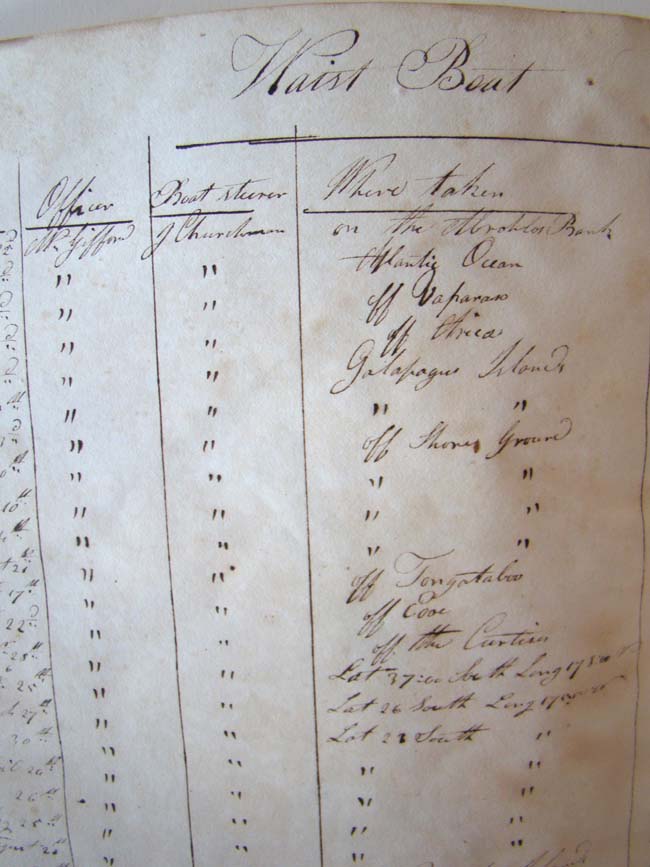 Waist Boat
Officer Boat steerer Where taken
Mr Gifford J Churchman on the Abrohlos Bank
" " Atlantic Ocean
" " off Vaparaso
" " off Arica
" " Galapagus Islands
" " " "
" " off Shore Ground
" " " "
10th " " " "
" " " "
" " off Tongataboo
17th " " off Eooe
22nd " " off the Curtises
" " Lat 37:00 South Long 175:00 W
25th " " Lat 26 South Long
27th " " Lat 23 South "
30th " " " "
26th " " " "
26th " " " "
25th " " " "
" "